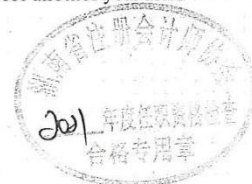 湖南省注册会计师协会
2021 年度任职资格检查
合格专用章